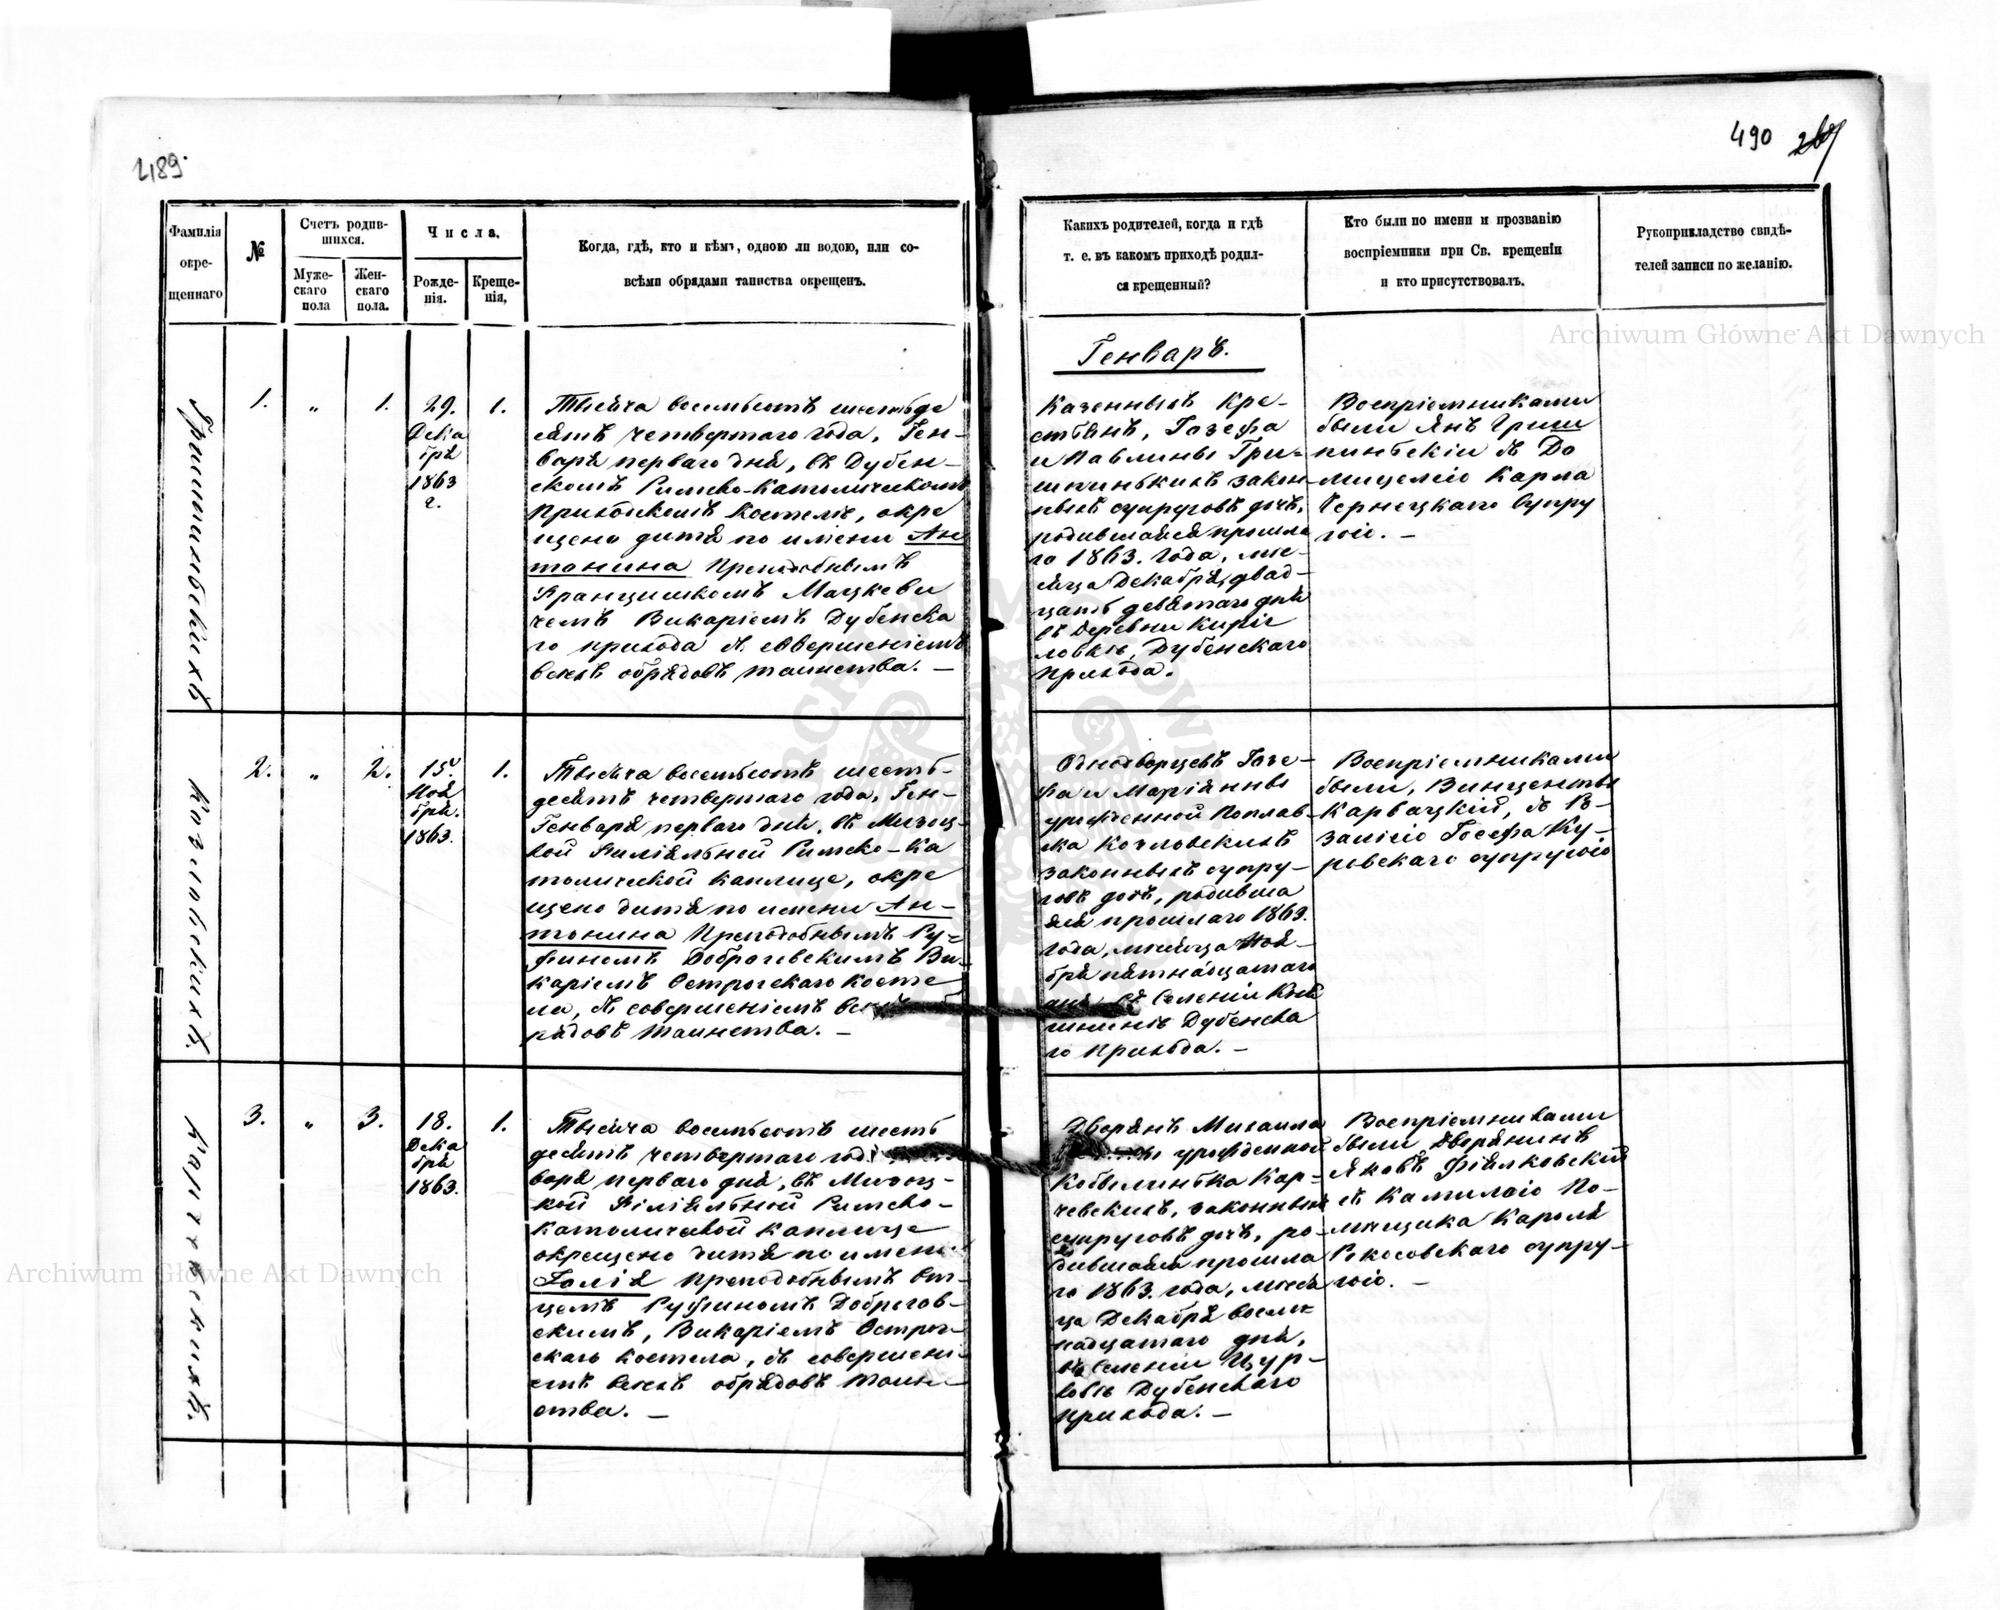 489.
490
Фамилія
окре-
щеннаго
№
Счетъ родив-
шихся.
Муже-
скаго
пола
Жен-
скаго
пола.
Числа.
Рожде-
нія.
Креще-
нія,
Когда, гдѣ, кто и кѣмъ, одною ли водою, или со-
всѣми обрядами таинства окрещенъ.
Какихъ родителей, когда и гдѣ
т. е. въ какомъ приходѣ родил-
ся крещенный?
Кто были по имени и прозванію
воспріемники при Св. крещеніи
и кто присутствовалъ.
Рукоприкладство свидѣ-
телей записи по желанію.
Генварь.
Гришпиньскихъ
1.
"
1.
29.
Дека
бря
1863
г.
1.
Тысяча восемьсотъ шестьде
сятъ четвертаго года, Ген-
варя перваго дня, въ Дубен-
скомъ Римско-Католическомъ
Приходскомъ Костелѣ, окре
щено дитя по имени Ан
тонина Преподобнымъ
Францишкомъ Мацкеви
чемъ Викаріемъ Дубенска
го прихода съ совершеніемъ
всехъ обрядовъ таинства. —
Казенныхъ Кре-
стьянъ, Іозефа
и Павлины Гри-
шпинькихъ закон-
ныхъ супруговъ дочь,
родившаяся прошла
го 1863. года, мѣ-
сяца Декабря, двад-
цать девятаго дня
въ деревни Кирис
ловкѣ, Дубенскаго
прихода.
Воспріемниками
были Янъ Гриш
пиньскіи съ До
мицелією Карла
Чернецкаго Супру
гою. —
Козловскихъ.
2.
"
2.
15.
Ноя
бря.
1863.
1.
Тысяча восемьсотъ шесть-
десятъ четвертаго года, Ген-
Генваря перваго дня, въ Мизоц-
кой Филіяльной Римско-Ка
толической каплице, окре
щено дитя по имени Ан-
тонина Преподобнымъ Ру-
финомъ Доброговскимъ Ви-
каріемъ Острогскаго Косте
ла, съ совершеніемъ всѣ
рядовъ таинства. —
Однодворцевъ Іозе-
фа и Маріанны
урожденной Поплав-
ска Козловскихъ
законныхъ супру-
говъ дочь, родивша
яся прошлаго 1863.
года, мѣсяца Ноя-
бря пятнадцатаго
дня въ Селеніи Кня
шинѣ Дубенска
го Прихода. —
Воспріемниками
были, Винцентый
Карвацкій, съ Ро-
залією Іосефа Ку-
ровскаго супругою
Карчевскихъ.
3.
"
3.
18.
Дека
бря
1863.
1.
Тысяча восемьсотъ шесть
десятъ четвертаго год
варя перваго дня, въ Мизоц-
кой Філіяльной Римско-
католической каплице
окрещено дитя по имени
Юлія Преподобнымъ От-
цемъ Руфиномъ Доброгов-
скимъ, Викаріемъ Острог-
скаго костела, съ совершені-
емъ всехъ обрядовъ таин-
ства. —
Дворянъ Михаила
урожденной
Кобылинька Кар-
чевскихъ, законныхъ
супруговъ дочь, ро-
дившаяся прошла
го 1863. года, мѣся
ца Декабря восем
надцатаго дня,
въ Селеніи Цур-
ковѣ Дубенскаго
прихода. —
Воспріемниками
были Дворянинъ
Яковъ Фіялковскій
съ Камилією По-
мѣщика Кароля
Рокосовскаго супру-
гою. —
Archiwum Główne Akt Dawnych
Archiwum Główne Akt Dawnych